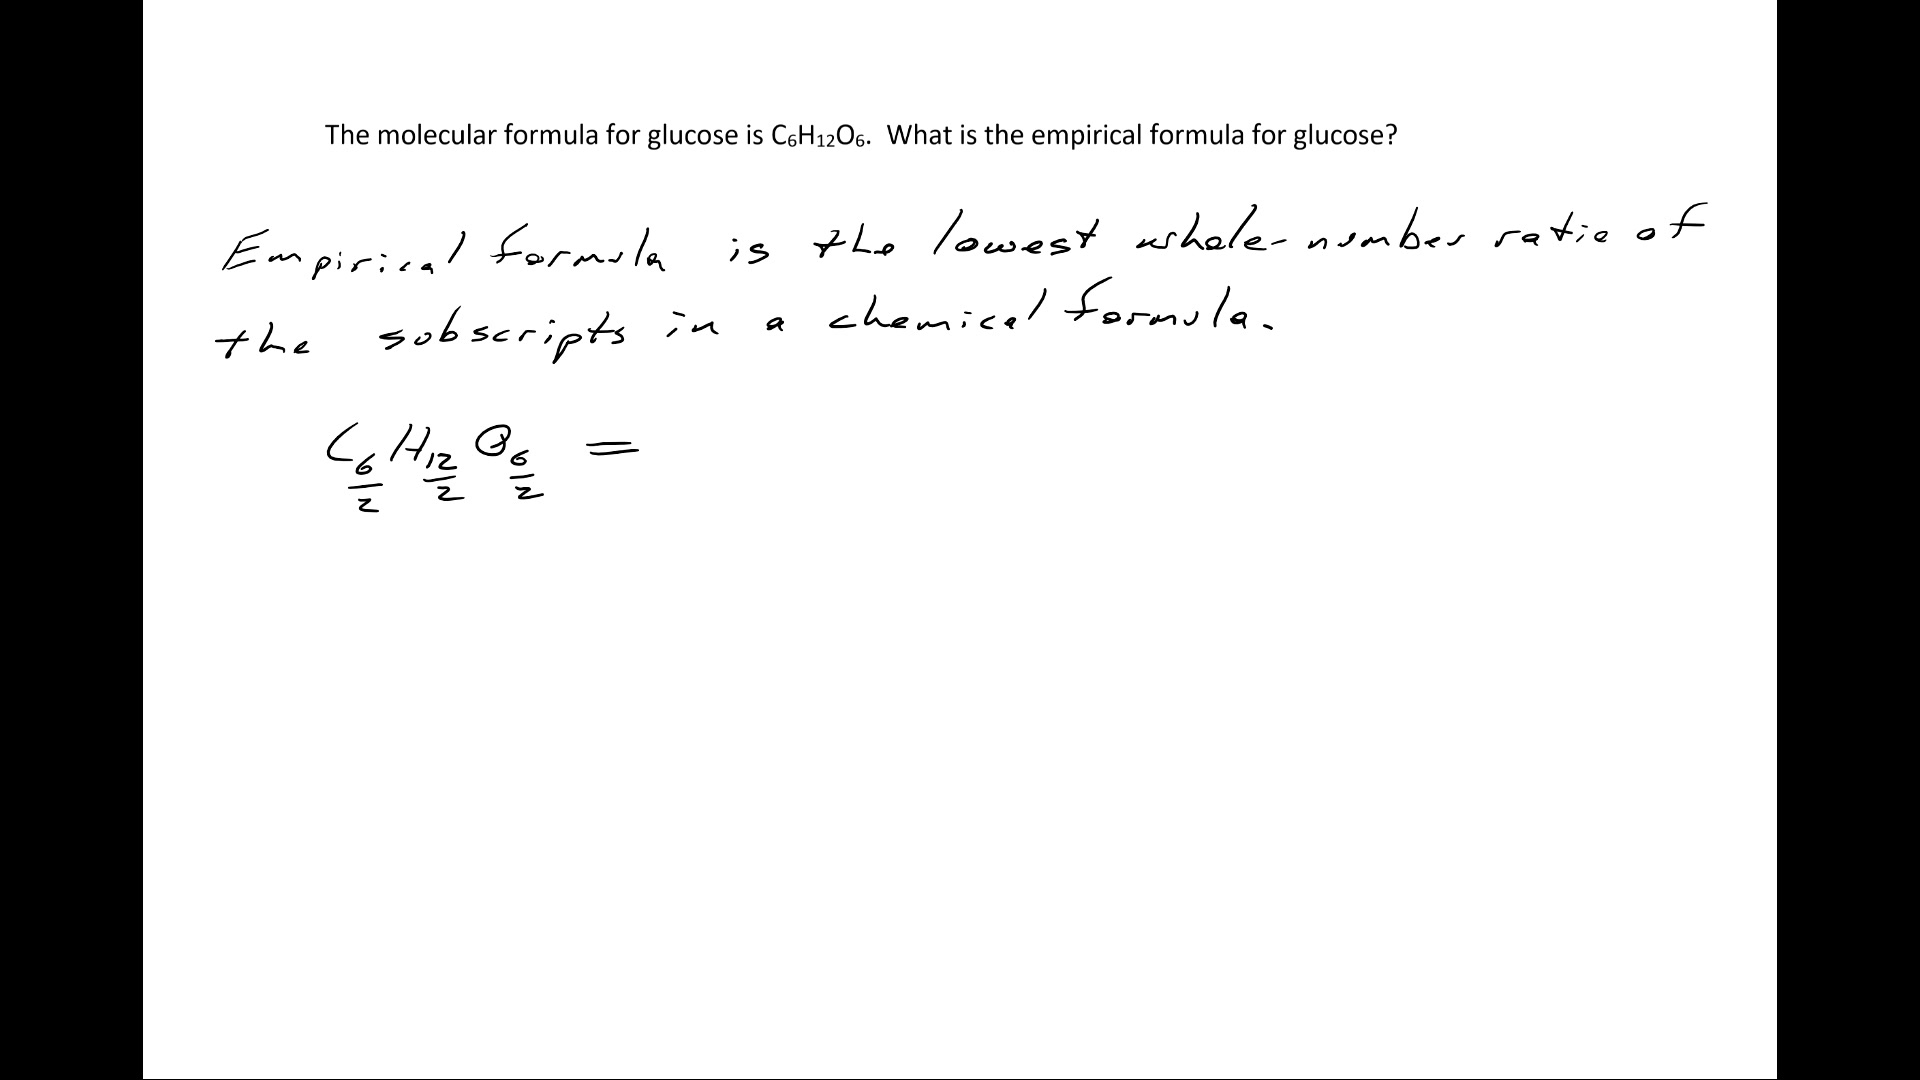 The molecular formula for glucose is C₆H₁₂O₆. What is the empirical formula for glucose?
Empirical formula is the lowest whole-number ratio of
the subscripts in a chemical formula.
C₆ H₁₂ O₆ =
2 2 2